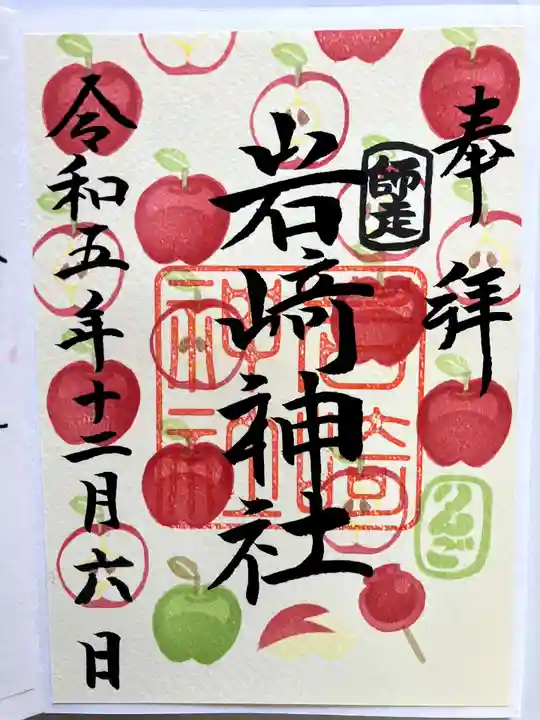 奉拝
師走
りんご
岩﨑神社
令和五年十二月六日